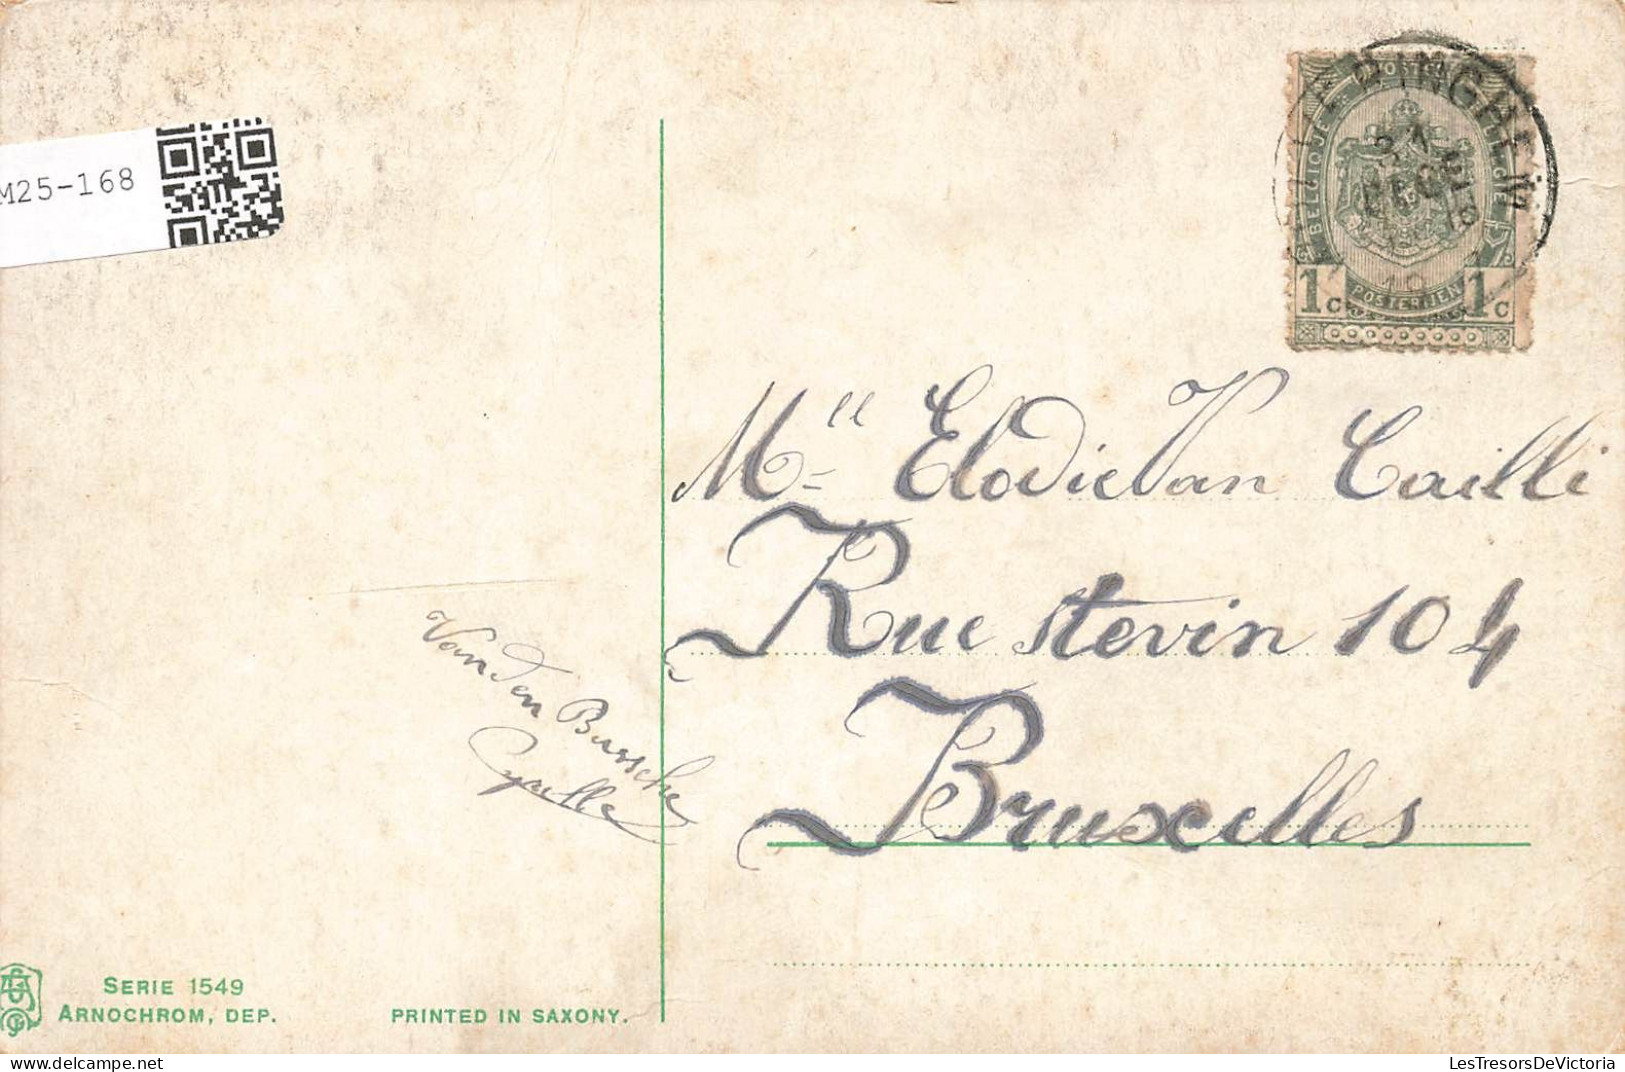 M25-168
BELGIQUE
1c POSTERIJEN 1c
Mll Elodie Van Cailli
Rue Stevin 104
Bruxelles
Van den Bussche
Cyrille
SERIE 1549
ARNOCHROM, DEP.
PRINTED IN SAXONY.
LesTresorsDeVictoria